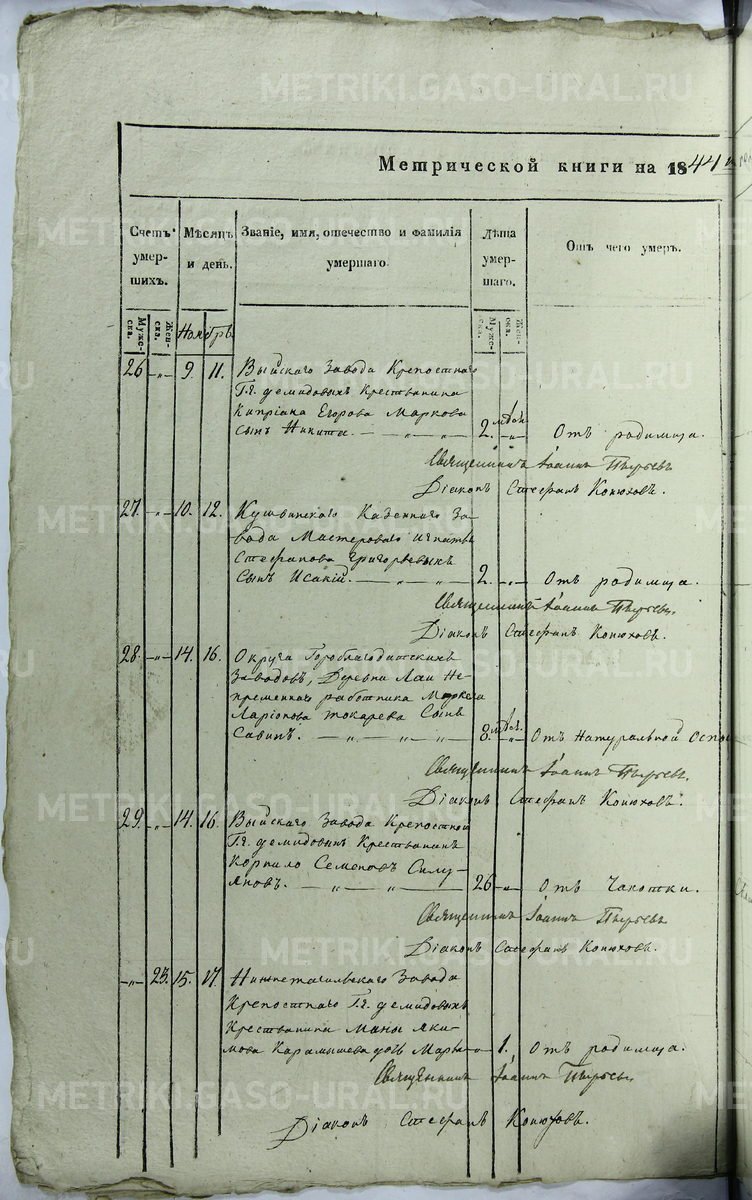 Метрической книги на 1844
Счетъ умер-шихъ.
Мѣсяцъ и день.
Званіе, имя, отечество и фамилія умершаго.
Лѣта умер-шаго.
Отъ чего умеръ.
Муже-ска.
Жен-ска.
Ноябрь
Муже-ска.
Жен-ска.
26 -„- 9. 11. Выйскаго Завода Крепостнаго
Г.г. Демидовыхъ Крестьянина
Кипріана Егорова Маркова
сынъ Никита. — „ „ „ 2. мѣся. -„- Отъ родимца.
Священникъ Іоаннъ
Діаконъ Стефанъ Конюховъ.
27. -„- 10. 12. Кушвинскаго Казеннаго За-
вода Мастероваго Игнатья
Стефанова Григорьевыхъ
Сынъ Исакій. — „ „ „ 2. -„- Отъ родимца.
Священникъ Іоаннъ
Діаконъ Стефанъ Конюховъ.
28. -„- 14. 16. Округа Гороблагодатскихъ
Заводовъ, Деревни Лаи Не-
премѣннаго работника Маркела
Ларіонова Токарева Сынъ
Савинъ. — „ „ „ 8. мѣся. -„- Отъ Натуральной Оспы
Священникъ Іоаннъ
Діаконъ Стефанъ Конюховъ.
29. -„- 14. 16. Выйскаго Завода Крепостной
Г.г. Демидовыхъ Крестьянинъ
Корнило Семеновъ Симу-
яновъ. — „ — „ — 26 -„- Отъ Чахотки.
Священникъ Іоаннъ
Діаконъ Стефанъ Конюховъ.
-„- 25. 15. 17. Нижнетагильскаго Завода
Крепостнаго Г.г. Демидовыхъ
Крестьянина Яки-
мова Карамышева дочь Марья -„- 1. Отъ родимца.
Священникъ Іоаннъ
Діаконъ Стефанъ Конюховъ.
METRIKI.GASO-URAL.RU